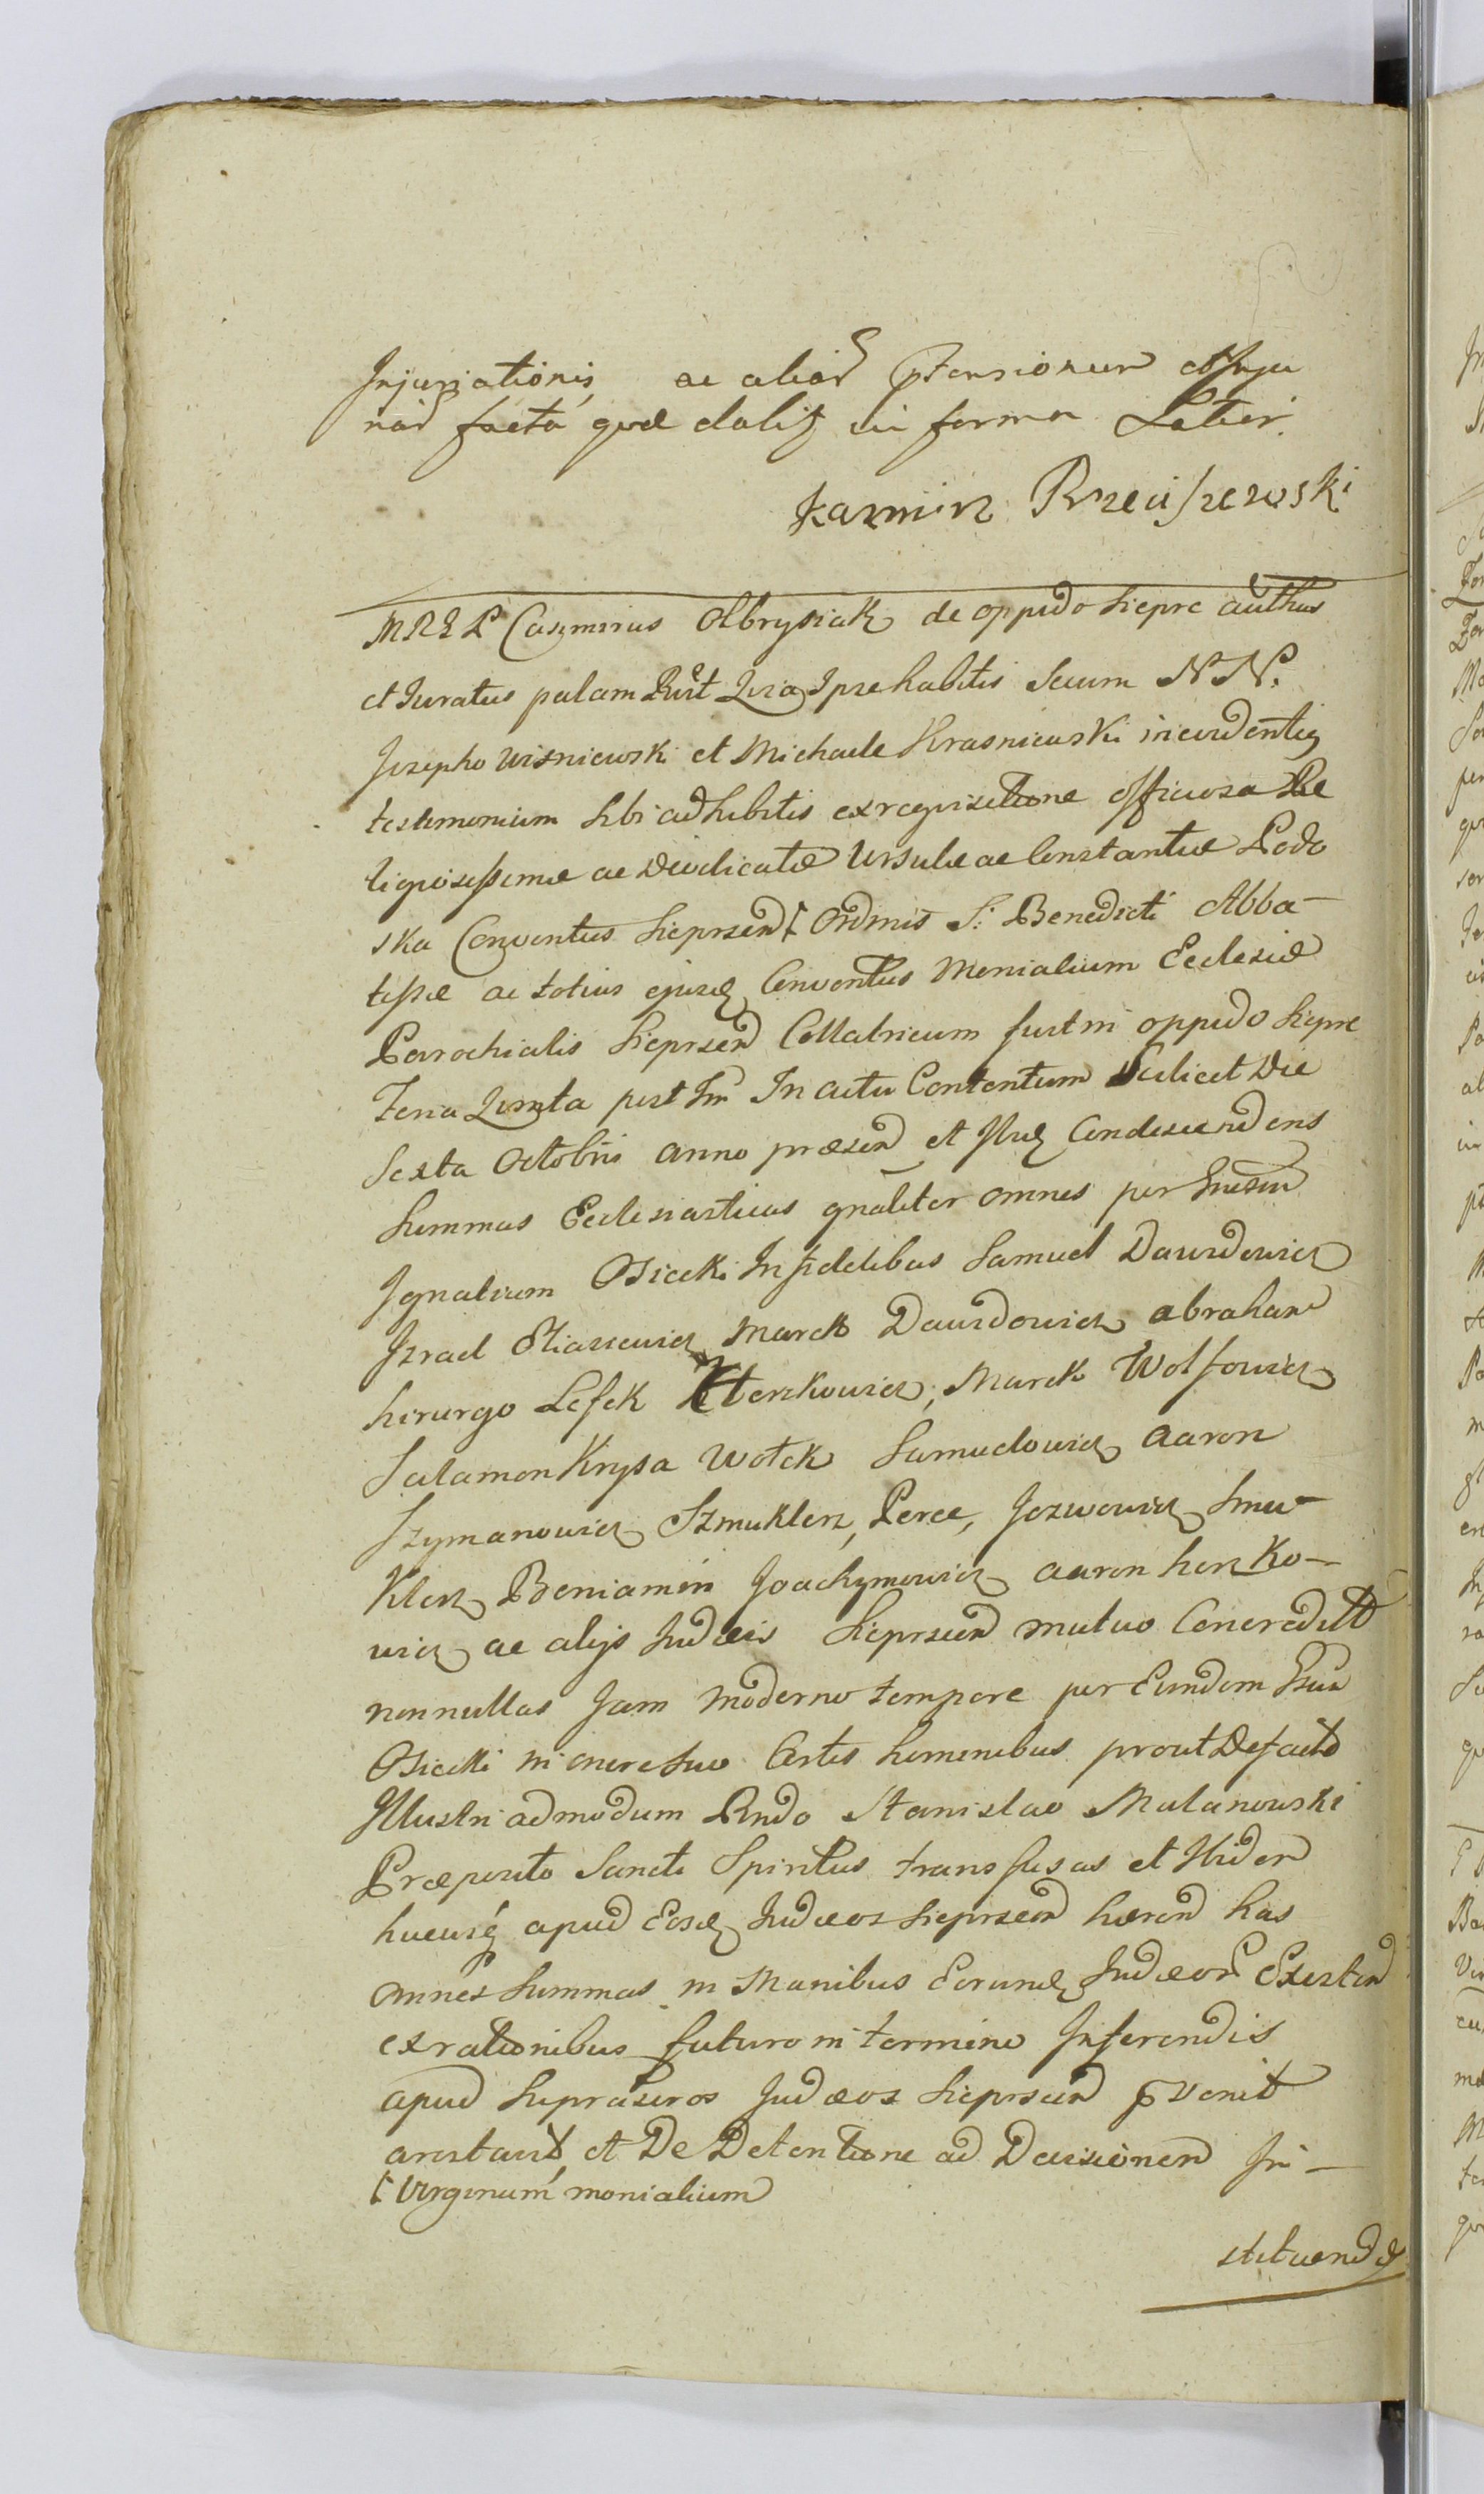 Injuriationis, ac aliar ptensionum ob Inju
riar facta, quæ dalis in forma Latior.
Kazmirz Rzeciszewski
MREP Casimirus Olbrysiak de oppido Siepre authus
et Juratus palam Quia Iprehabitis Secum N N.
Josepho Wisniewski et Michaele Krasniewski in evidentius
testimonium sibi adhibitis exrequisitione officiosa Re
ligiosissimæ ac Deodicatæ Ursulæ ac Constantiæ Podo
ska Conventus Sieprsen [ Ordinis S: Benedicti Abba-
tissæ ac totius ejusd Conventus Monialium Ecclesiæ
Parochialis Sieprsen Collatricum fuit in oppido Siepre
Feria Quinta post Fm In actu Contentum Scilicet Die
Sexta Octobris anno præsen et Condescendens
Summas Ecclesiasticas gnaliter omnes per Gnosum
Ignatium Osiecki Infidelibus Samuel Dawidowicz
Izrael Eliaszewicz Marek Dawidowicz abraham
hirurgo Lesek Herszkowicz, Marek Wolfowicz
Salamon Krysa Wolek Samuelowicz aaron
Szymanowicz Szmuklerz, Perec, Jozwowicz Smu-
klerz Beniamin Joachymowicz aaron herszko-
wicz ac alijs Judæis Sieprsen mutuo Concredit
nonnullas Jam moderno tempore per Eundem Gsum
Osiecki in onere suo Certis hominibus prout Defacto
Illustri admodum Rndo Stanislao Malanowski
Præposito Sancti Spiritus transfusas et Ibiden
hucusq apud Eosd Judæos Sieprsen hæren has
omnes Summas in Manibus Eorund Judæor Existen
exrationibus futuro in termino Inferendis
apud Suprascros Judæos Sieprsen pvenit
arestavit, et De Detentione ad Decisionem In-
[ Virginum monialium
stituend